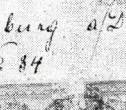 burg a/D
84